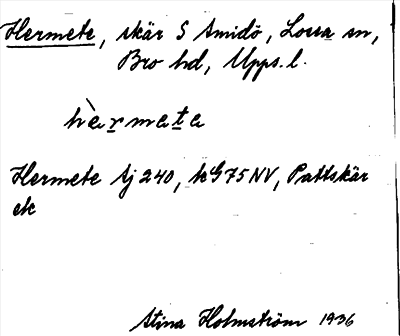 Hermete, skär S Amidö, Lossa sn,
Bro hd, Upps. l.
hèrmeta
Hermete Sj 240, kG 75 NV, Pattskär
ek
Stina Holmström 1936